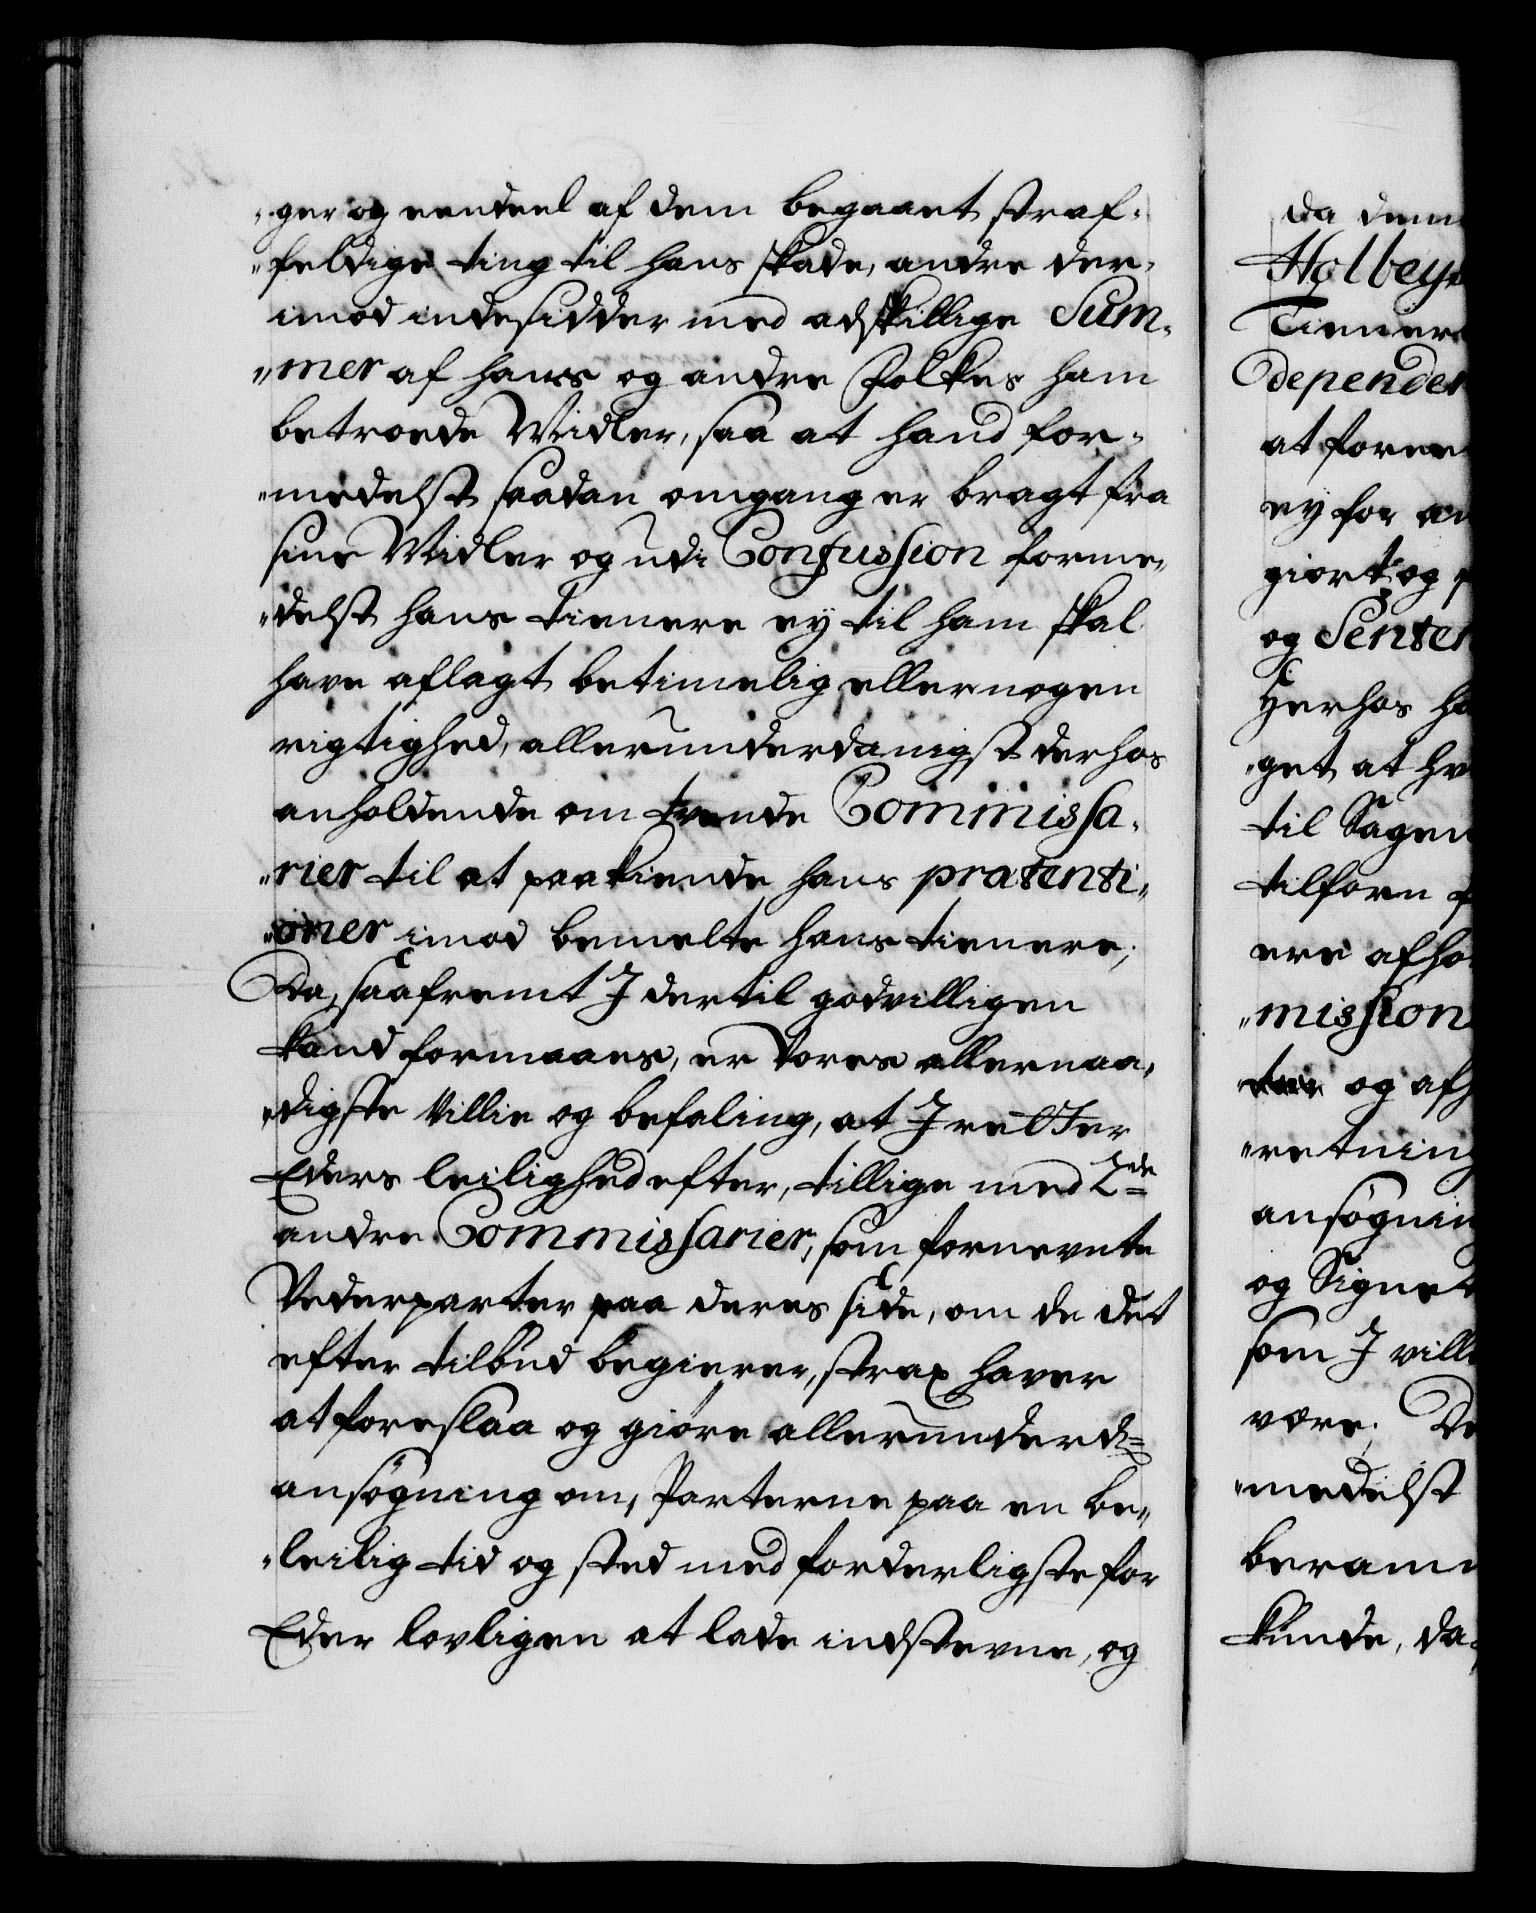 "ger og eendeel af dem begaaet straf-
"feldige ting til hans skade, andre der-
imod indesidder med adskillige Sum-
"mer af hans og andre Folkes ham
betroede Midler, saa at hand for-
"medelst saadan omgang er bragt fra
sine Midler og udi Confussion forme-
"delst hans tienere ey til ham skal
have aflagt betimelig eller nogen
rigtighed, allerunderdanigst derhos
anholdende om trende Commissa-
"rier til at paakiende hans prætenti-
"oner imod bemelte hans tienere;
Da, saafremt I dertil godvilligen
kand formaaes, er Vores allernaa-
"digste Villie og befaling, at I retter
Eders leilighed efter, tillige med 2de
andre Commissarier, som fornevnte
Vederparter paa deres side, om de det
efter tilbud begierer, strax haver
at foreslaa og giøre allerunderd=
ansøgning om, Parterne paa en be-
"leilig tid og sted med forderligste for
Eder lovligen at lade indstevne, og
da dem
Holbey
Tiener
depender
at foree
ey for an
giort og
og Senten
Herhos ha
"get at hv
til Sagen
tilforn
ere afho
"mission
og afh
"retning
ansøgnin
og Signet
som I vill
være. De
"medelst
beram
kunde, da